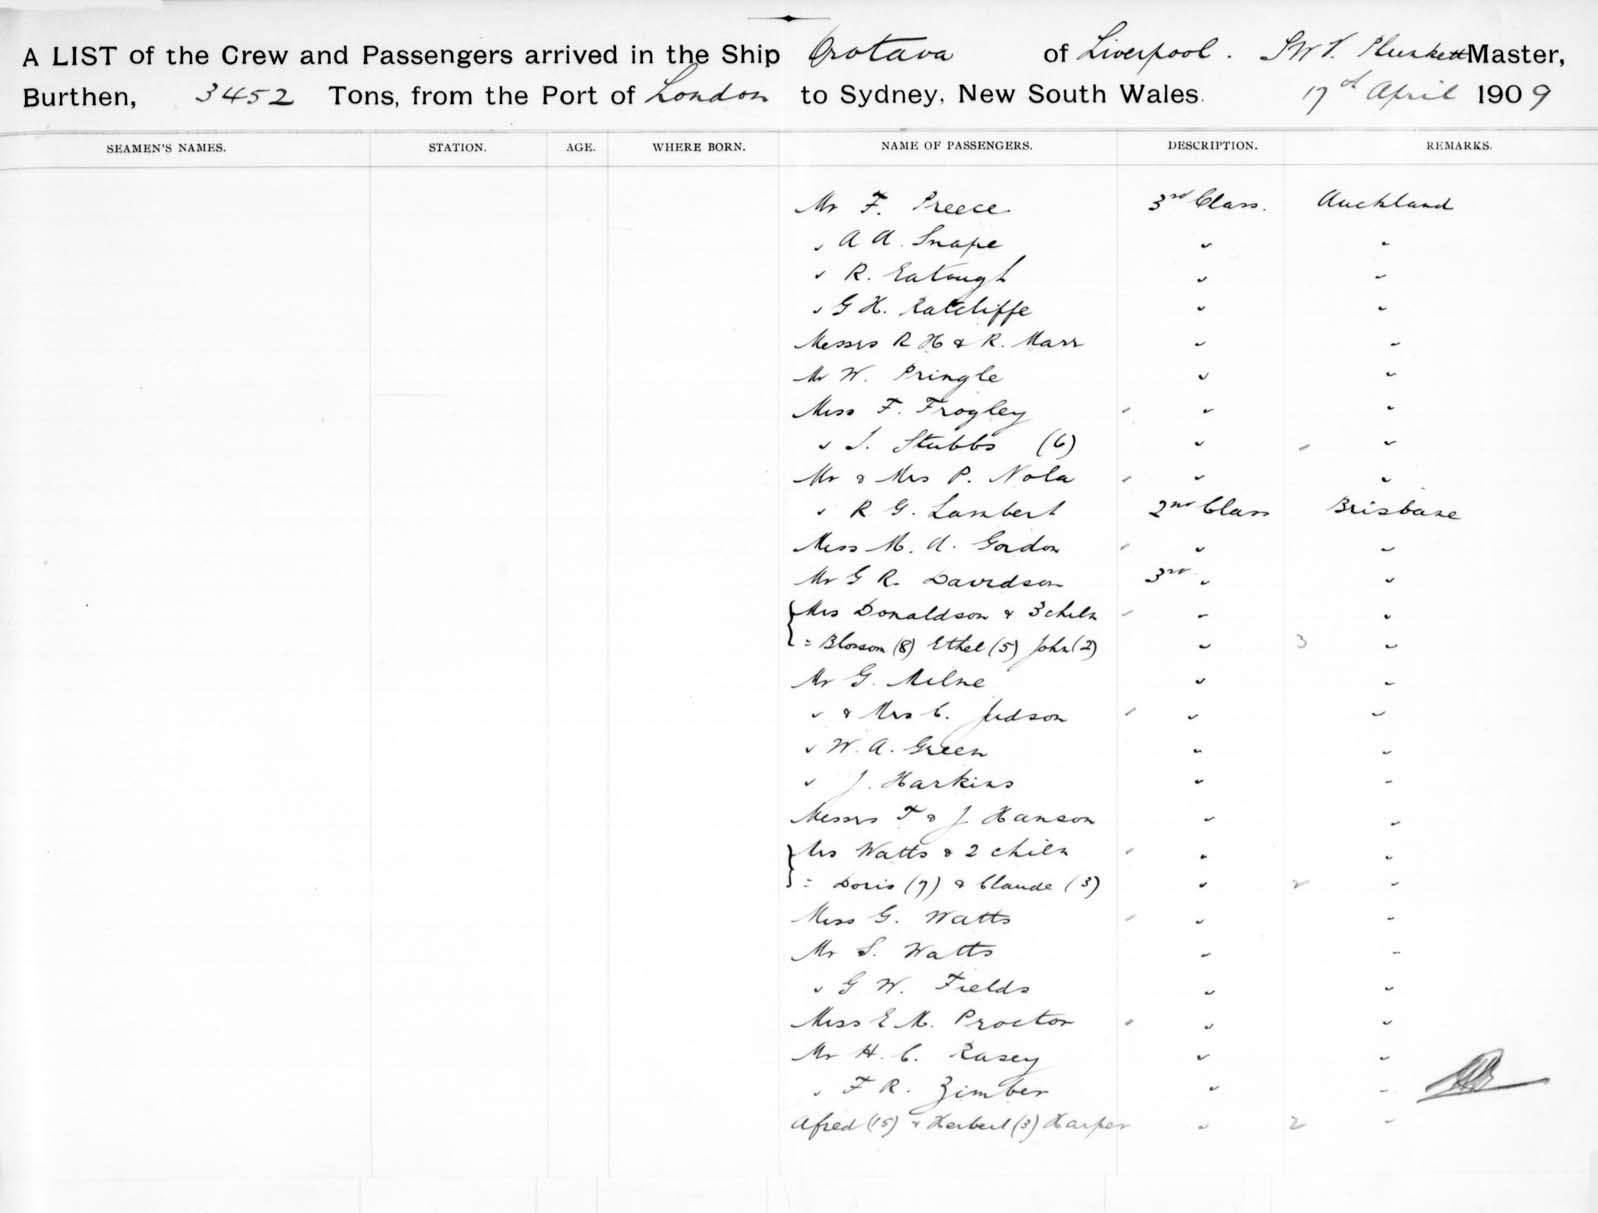 A LIST of the Crew and Passengers arrived in the Ship Orotava of Liverpool. Plunkett Master,
Burthen, 3452 Tons, from the Port of London to Sydney, New South Wales. 17th April 1909
SEAMEN'S NAMES. STATION. AGE. WHERE BORN. NAME OF PASSENGERS. DESCRIPTION. REMARKS.
Mr F. Preece 3rd Class. Auckland
" A A. Snape " "
" R. Eatough " "
" G H. Ratcliffe " "
Messrs R H & R. Marr " "
Mr W. Pringle " "
Miss F. Frogley " "
" S. Stubbs (6) " "
Mr & Mrs P. Nola " "
" R G. Lambert 2nd Class Brisbane
Miss M. A. Gordon " "
Mr G R. Davidson 3rd " "
Mrs Donaldson & 3 chiln " "
= Blossom (8) Ethel (5) John (2) " 3 "
Mr G. Milne " "
" & Mrs C. Judson " "
" W. A. Green " "
" J. Harkins " "
Messrs T & J Hanson " "
Mrs Watts & 2 chiln " "
= Doris (7) & Claude (3) " 2 "
Miss G. Watts " "
Mr S. Watts " "
" G W. Fields " "
Miss E M. Proctor " "
Mr H. C. Rasey " "
" F R. Zimber " "
Afred (15) & Herbert (3) Harper " 2 "